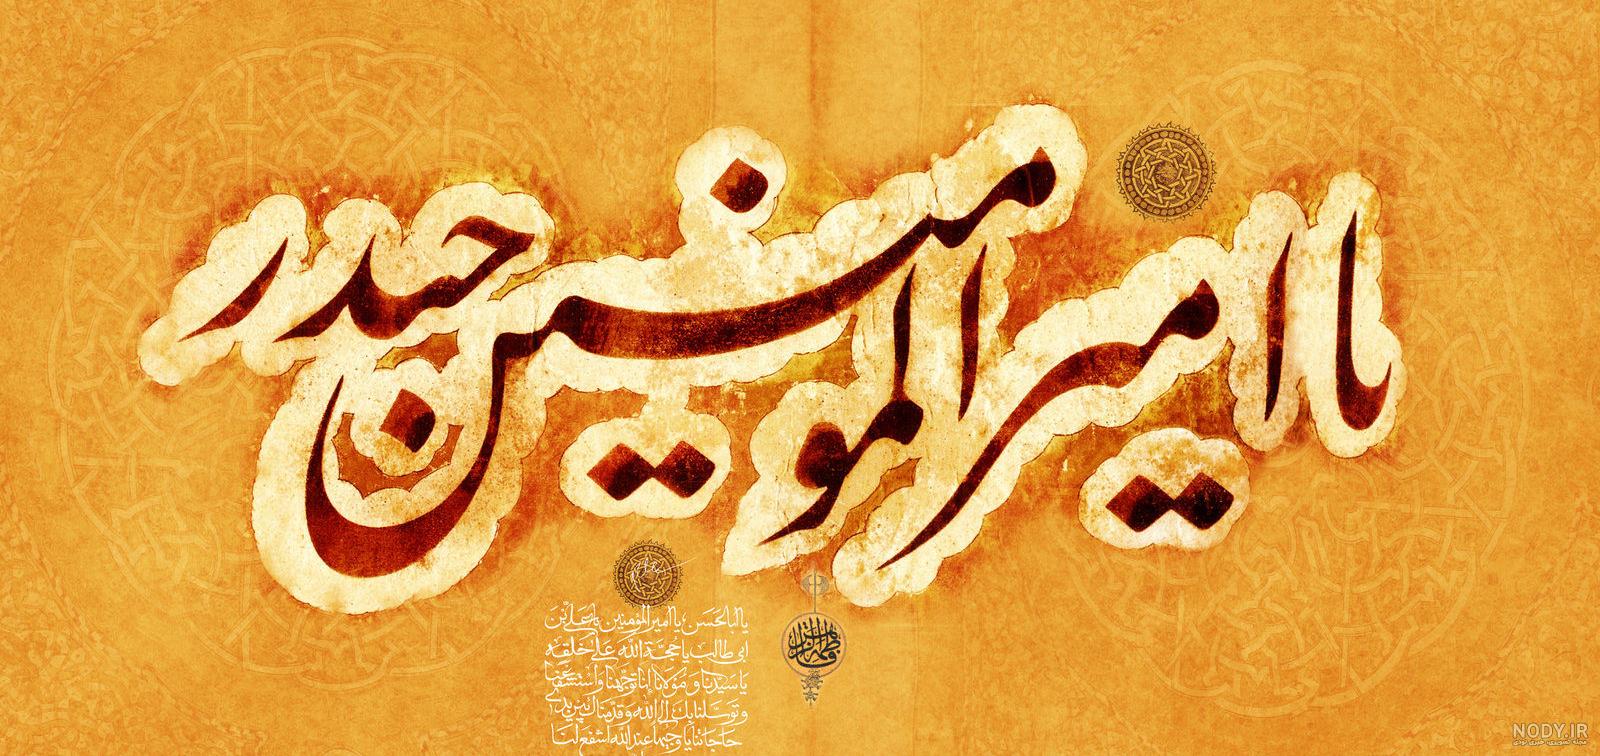 یا امیرالمومنین حیدر
یا اباالحسن، یا امیرالمؤمنین یا علی بن
ابی طالب یا حجة الله علی خلقه
یا سیدنا و مولانا انا توجهنا واستشفعنا
و توسلنا بک الی الله و قدمناک بین یدی
حاجاتنا یا وجیها عند الله اشفع لنا
فاطمة الزهرا
NODY.IR
مجله تصویری خبری نودی